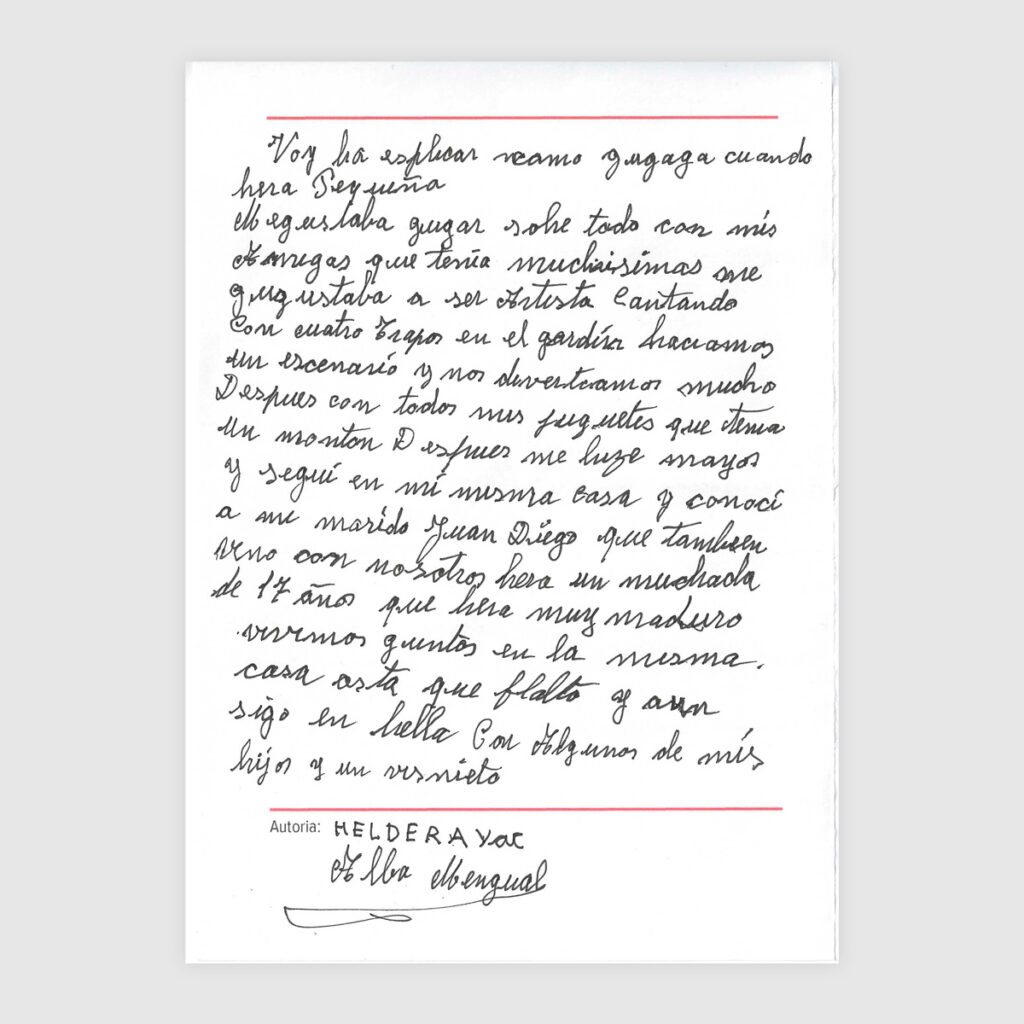 Voy ha esplicar como gugaga cuando
hera Pequeña
Megustaba gugar sobe todo con mis
Amigas que tenia muchisimas me
gugustaba a ser Artista Cantando
Con cuatro Trapos en el gardín haciamos
un escenario y nos divertiamos mucho
Despues con todos mis juguetes que tenia
un monton Despues me hize mayor
y seguí en mi misma casa y conocí
a mi marido Juan Diego que tambien
vino con nosotros hera un muchada
de 17 años que hera muy maduro
vivimos guntos en la misma.
casa asta que flalto y aun
sigo en hella Con Algunos de mis
hijos y un visnieto
Autoria: HELDERAYac
Alba Mengual